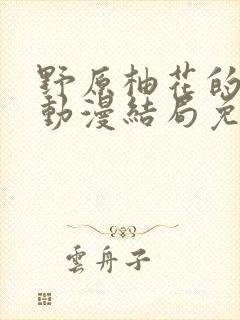 野原柚花的
動漫結局免
雲舟子